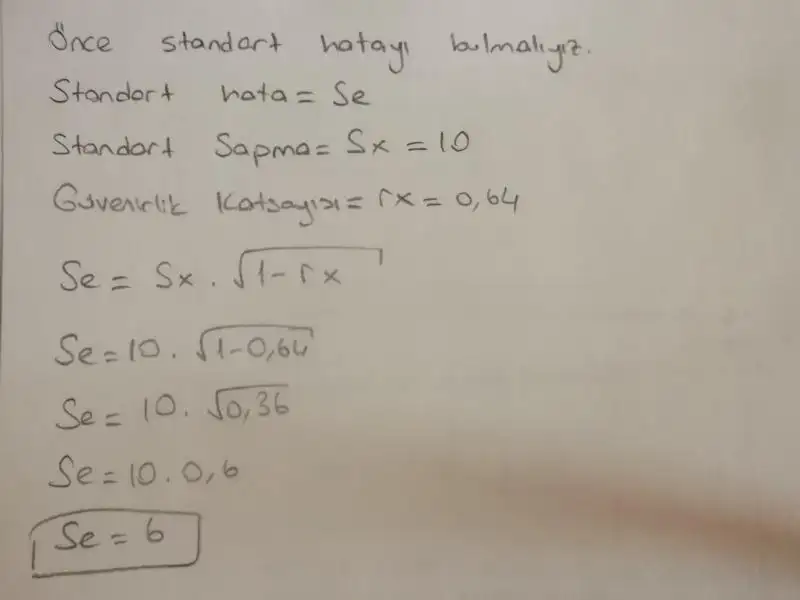 Önce standart hatayı bulmalıyız.
Standart hata = Se
Standart Sapma = Sx = 10
Güvenirlik Katsayısı = rx = 0,64
Se = Sx . √1 - rx
Se = 10 . √1-0,64
Se = 10 . √0,36
Se = 10 . 0,6
Se = 6